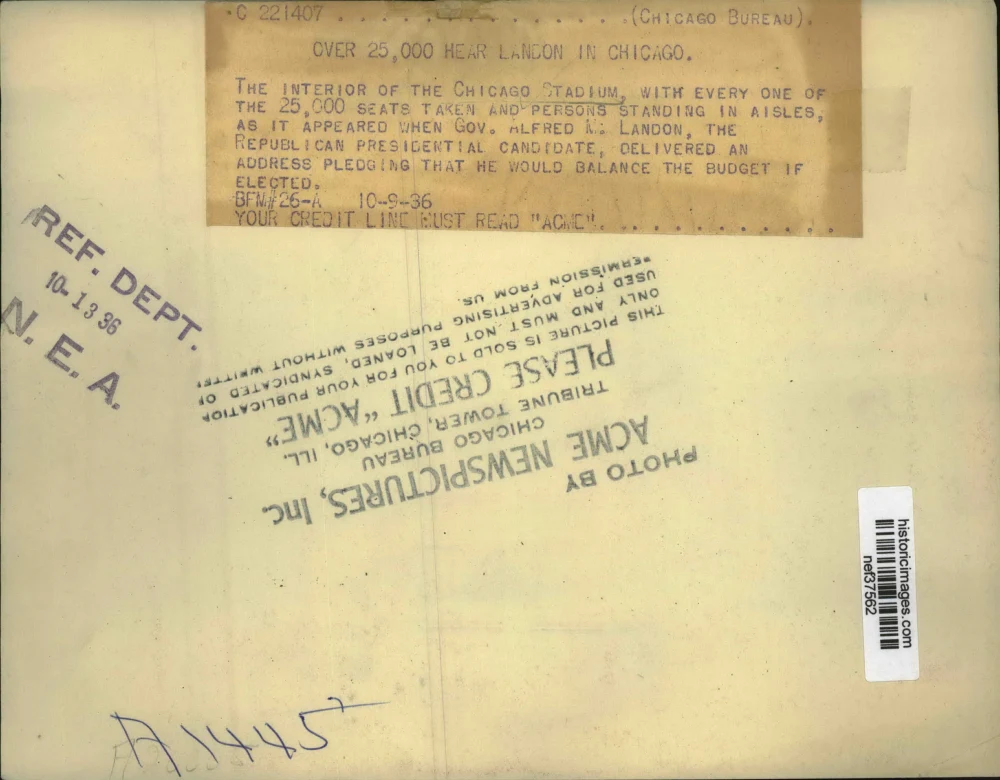 C 221407 . . . . . . . . . . . . . . . (CHICAGO BUREAU).
OVER 25,000 HEAR LANDON IN CHICAGO.
THE INTERIOR OF THE CHICAGO STADIUM, WITH EVERY ONE OF
THE 25,000 SEATS TAKEN AND PERSONS STANDING IN AISLES,
AS IT APPEARED WHEN GOV. ALFRED M. LANDON, THE
REPUBLICAN PRESIDENTIAL CANDIDATE, DELIVERED AN
ADDRESS PLEDGING THAT HE WOULD BALANCE THE BUDGET IF
ELECTED.
BFM#26-A 10-9-36
YOUR CREDIT LINE MUST READ "ACME". . . . . . . . . . . .
REF. DEPT.
10-13 36
N. E. A.
PHOTO BY
ACME NEWSPICTURES, Inc.
CHICAGO BUREAU
TRIBUNE TOWER, CHICAGO, ILL.
PLEASE CREDIT "ACME"
THIS PICTURE IS SOLD TO YOU FOR YOUR PUBLICATION
ONLY AND MUST NOT BE LOANED, SYNDICATED OR
USED FOR ADVERTISING PURPOSES WITHOUT WRITTEN
PERMISSION FROM US.
historicimages.com
nef37562
A 1445